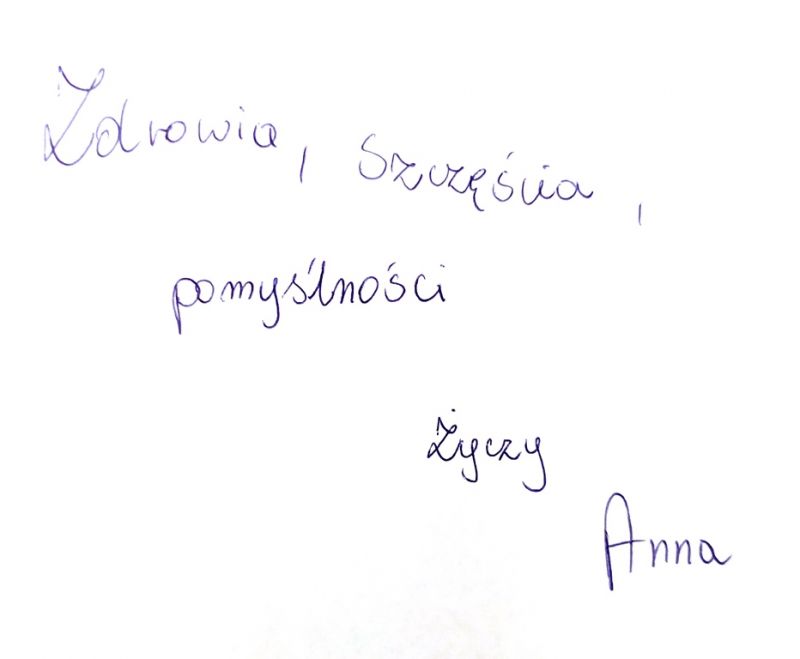 Zdrowia, szczęścia,
pomyślności
życzy
Anna